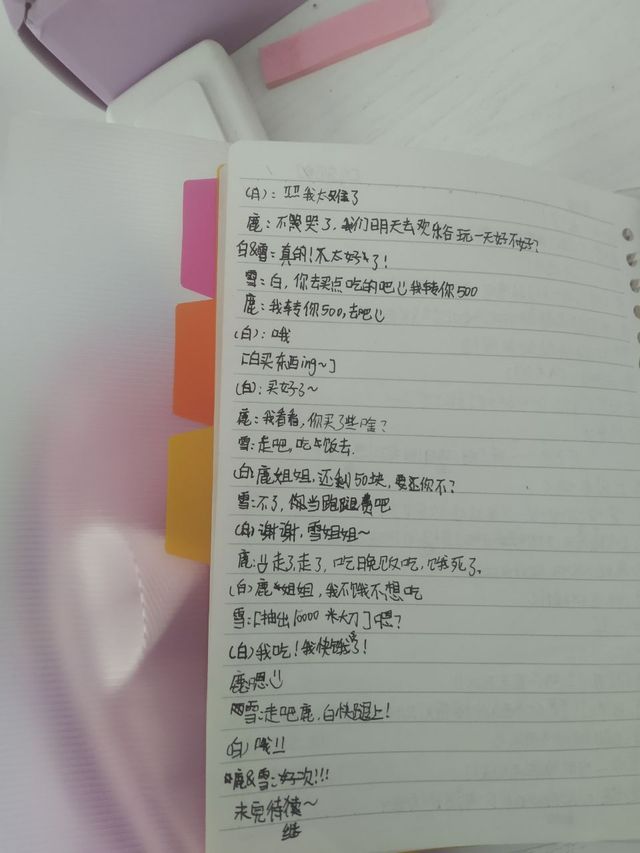 (白): 呜呜我太难了
鹿: 不哭哭了, 我们明天去欢乐谷玩一天好不好?
白&雪: 真的! 太好了!
雪: 白, 你去买点吃的吧 我转你500
鹿: 我转你500, 去吧
(白): 哦
[白买东西ing~]
(白): 买好了~
鹿: 我看看, 你买了些啥?
雪: 走吧, 吃饭去.
(白): 鹿姐姐, 还剩50块, 要还你不?
雪: 不了, 当跑腿费吧
(白) 谢谢, 雪姐姐~
鹿: 走了走了, 吃晚饭吃, 饿死了.
(白) 鹿姐姐, 我不饿不想吃
雪: [抽出10000米大刀] 嗯?
(白) 我吃! 我快饿死了!
鹿: 嗯
雪: 走吧鹿, 白快跟上!
(白) 哦!!
鹿&雪: 好次!!!
未完待续~